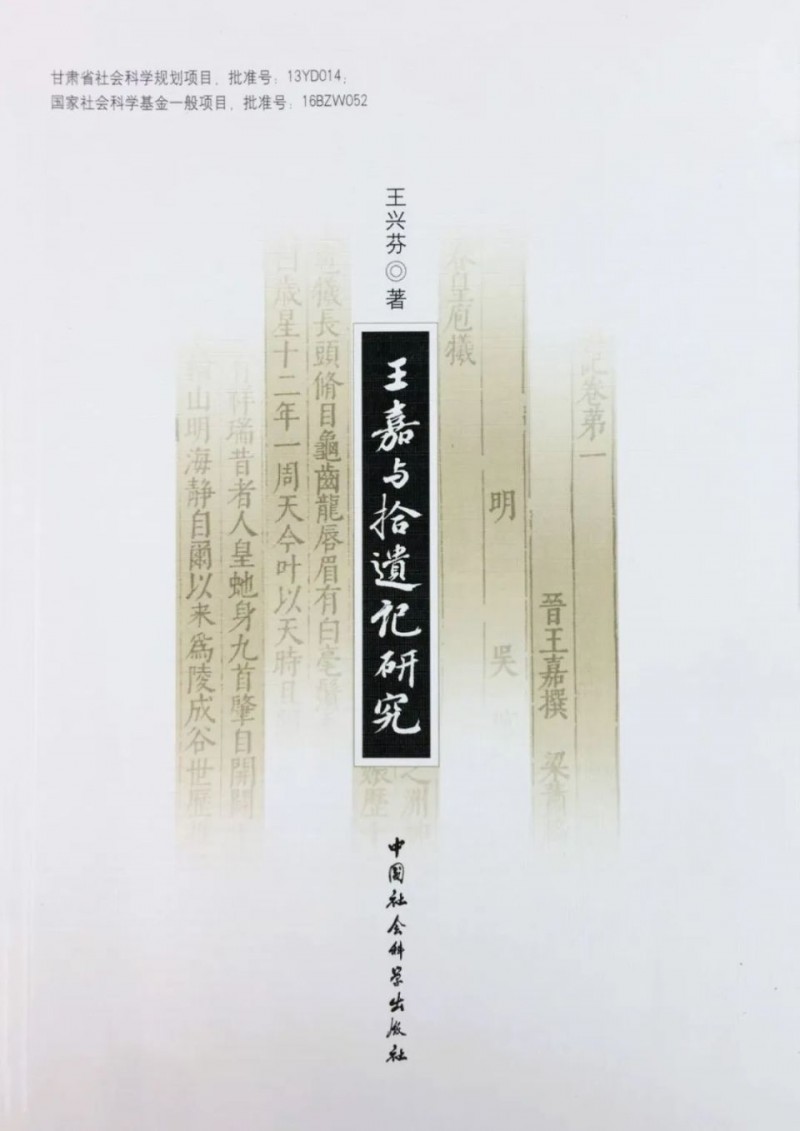 甘肃省社会科学规划项目，批准号：13YD014；
国家社会科学基金一般项目，批准号：16BZW052
王兴芬◎著
王嘉与拾遗记研究
卷第一
晉王嘉撰 梁
明 吳
春皇庖犧
長頭脩目龜齒龍唇眉有白毫
曰歲星十二年一周天今叶以天時
祥瑞昔者人皇虵身九首肇自開闢
山明海静自爾以来為陵成谷世歷
之洲
娠歷
中国社会科学出版社